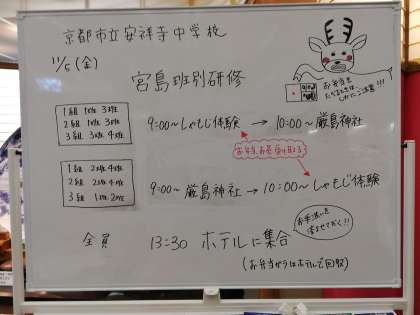 京都市立安祥寺中学校
11/5(金)
宮島班別研修
お弁当を
たべるときは
しかにご注意!!!
1組 1班 3班
2組 1班 3班
3組 3班 4班
9:00〜しゃもじ体験 → 10:00〜厳島神社
お弁当お茶受け取る
1組 2班 4班
2組 2班 4班
3組 1班 2班
9:00〜厳島神社 → 10:00〜しゃもじ体験
お手洗いを
済ませておく!!
全員 13:30 ホテルに集合
(お弁当がらはホテルで回収)